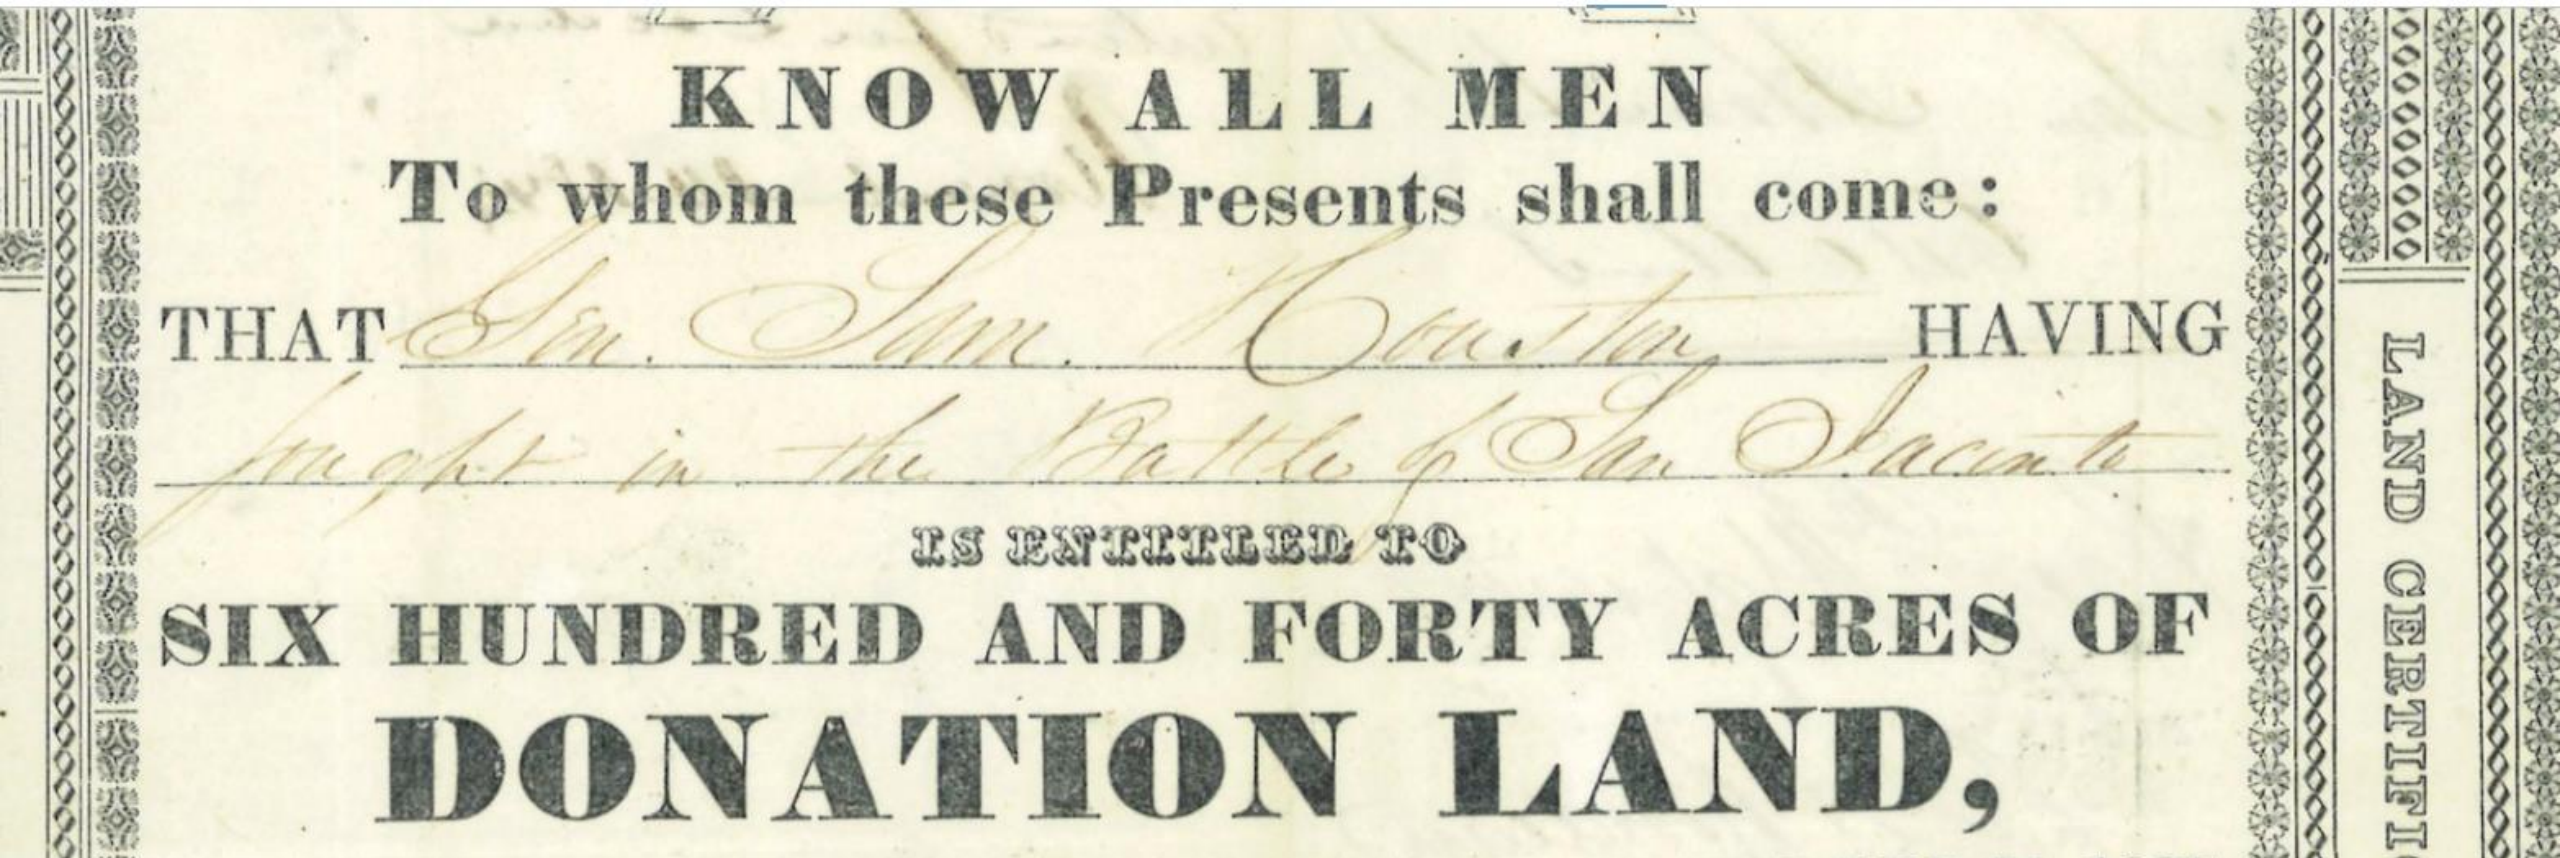 KNOW ALL MEN
To whom these Presents shall come:
THAT Gen. Sam. Houston HAVING
fought in the Battle of San Jacinto
IS ENTITLED TO
SIX HUNDRED AND FORTY ACRES OF
DONATION LAND,
LAND CERTIFI